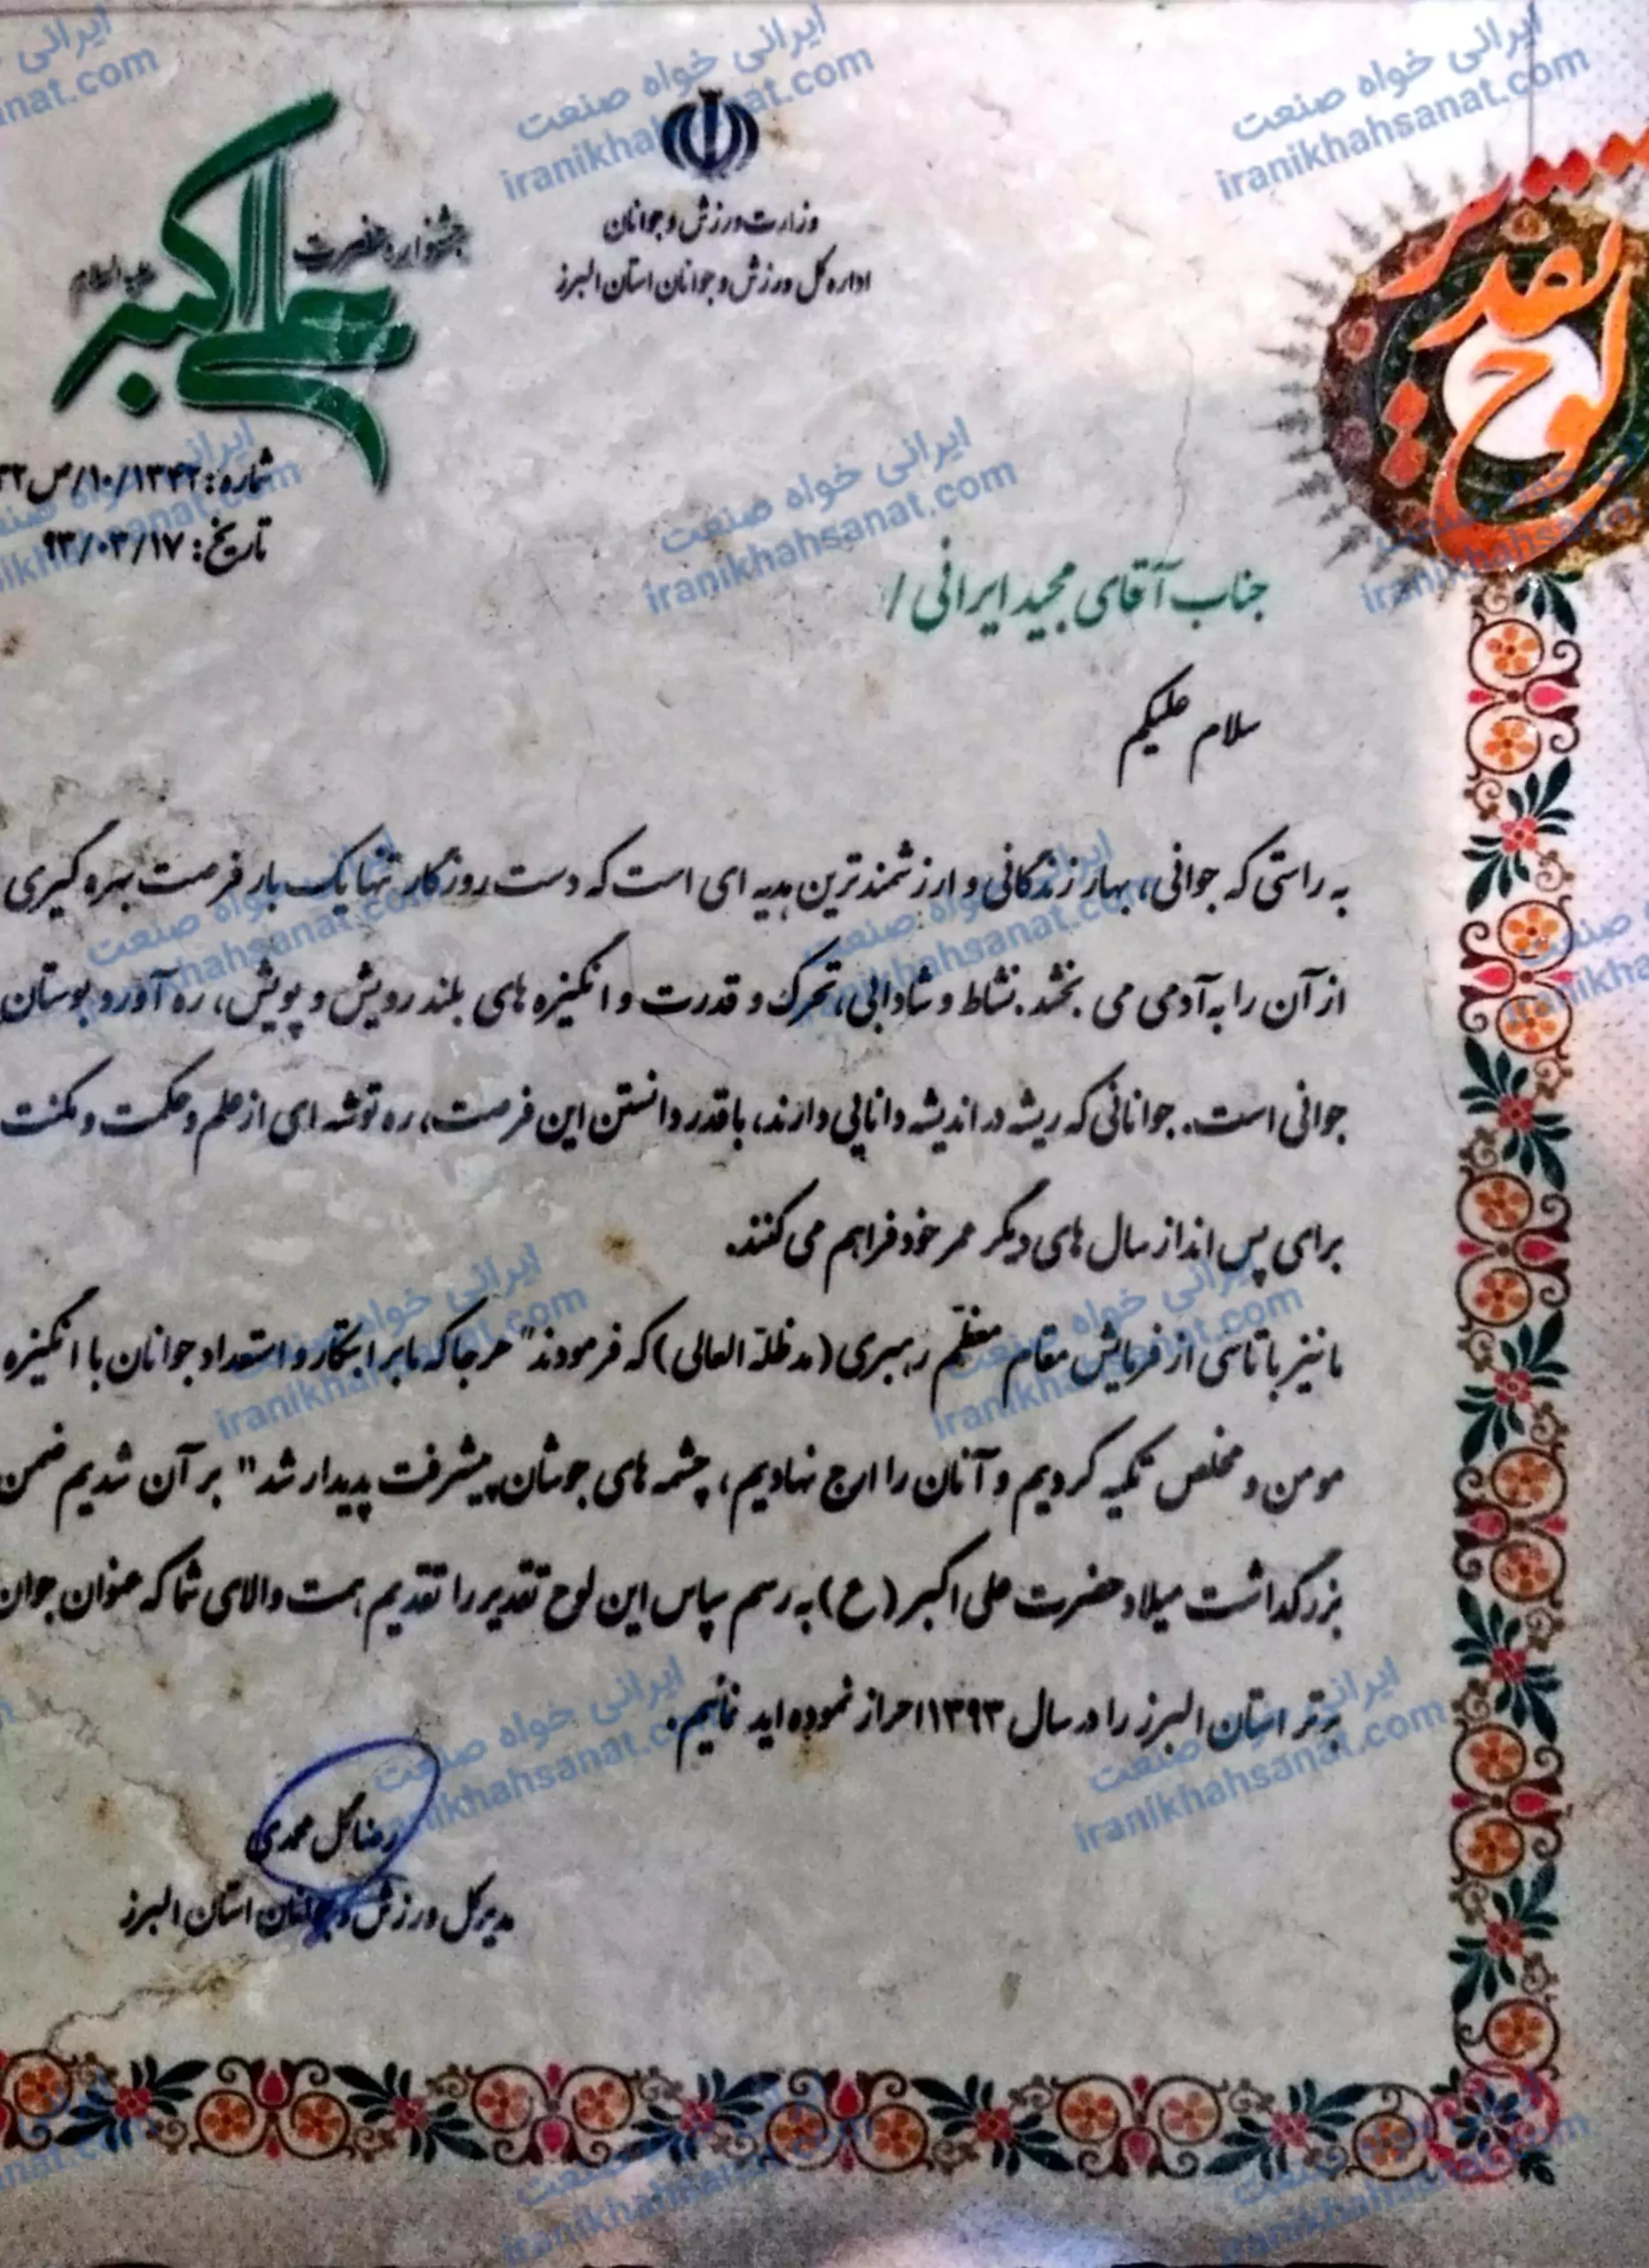 لوح تقدیر
وزارت ورزش و جوانان
اداره کل ورزش و جوانان استان البرز
جشنواره حضرت علی اکبر علیه السلام
شماره: ۱۰/۱۳۴۲/ص
تاریخ: ۹۳/۰۳/۱۷
جناب آقای مجید ایرانی /
سلام علیکم
به راستی که جوانی، بهار زندگانی و ارزشمندترین هدیه ای است که دست روزگار تنها یک بار فرصت بهره گیری
از آن را به آدمی می بخشد. نشاط و شادابی، تحرک و قدرت و انگیزه های بلند رویش و پویش، ره آورد بوستان
جوانی است. جوانانی که ریشه در اندیشه دانایی دارند، با قدر دانستن این فرصت، ره توشه ای از علم و حکمت و مکنت
برای پس انداز سال های دیگر عمر خود فراهم می کنند.
ما نیز با تاسی از فرمایش مقام معظم رهبری (مد ظله العالی) که فرمودند" هر جا که ما بر ابتکار و استعداد جوانان با انگیزه
مومن و مخلص تکیه کردیم و آنان را ارج نهادیم، چشمه های جوشان پیشرفت پدیدار شد" بر آن شدیم ضمن
بزرگداشت میلاد حضرت علی اکبر (ع) به رسم سپاس این لوح تقدیر را تقدیم همت والای شما که عنوان جوان
برتر استان البرز را در سال ۱۳۹۳ احراز نموده اید نمائیم.
رضا گل محمدی
مدیر کل ورزش و جوانان استان البرز
ایرانی خواه صنعت
iranikhahsanat.com